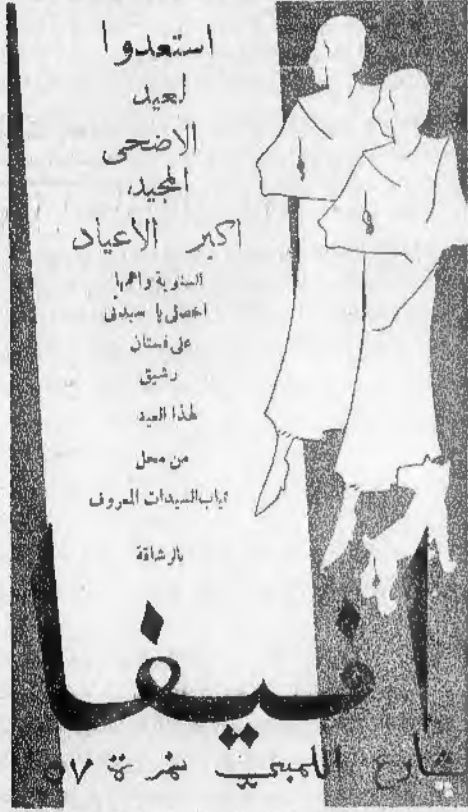 استعدوا
لعيد
الاضحى
المجيد،
اكبر الأعياد
السنوية واهمها
احصلي يا سيدتي
على فستان
رشيق
لهذا العيد
من محل
ثياب السيدات المعروف
بالرشاقة
افيفا
شارع اللمبي نمرة ٥٧